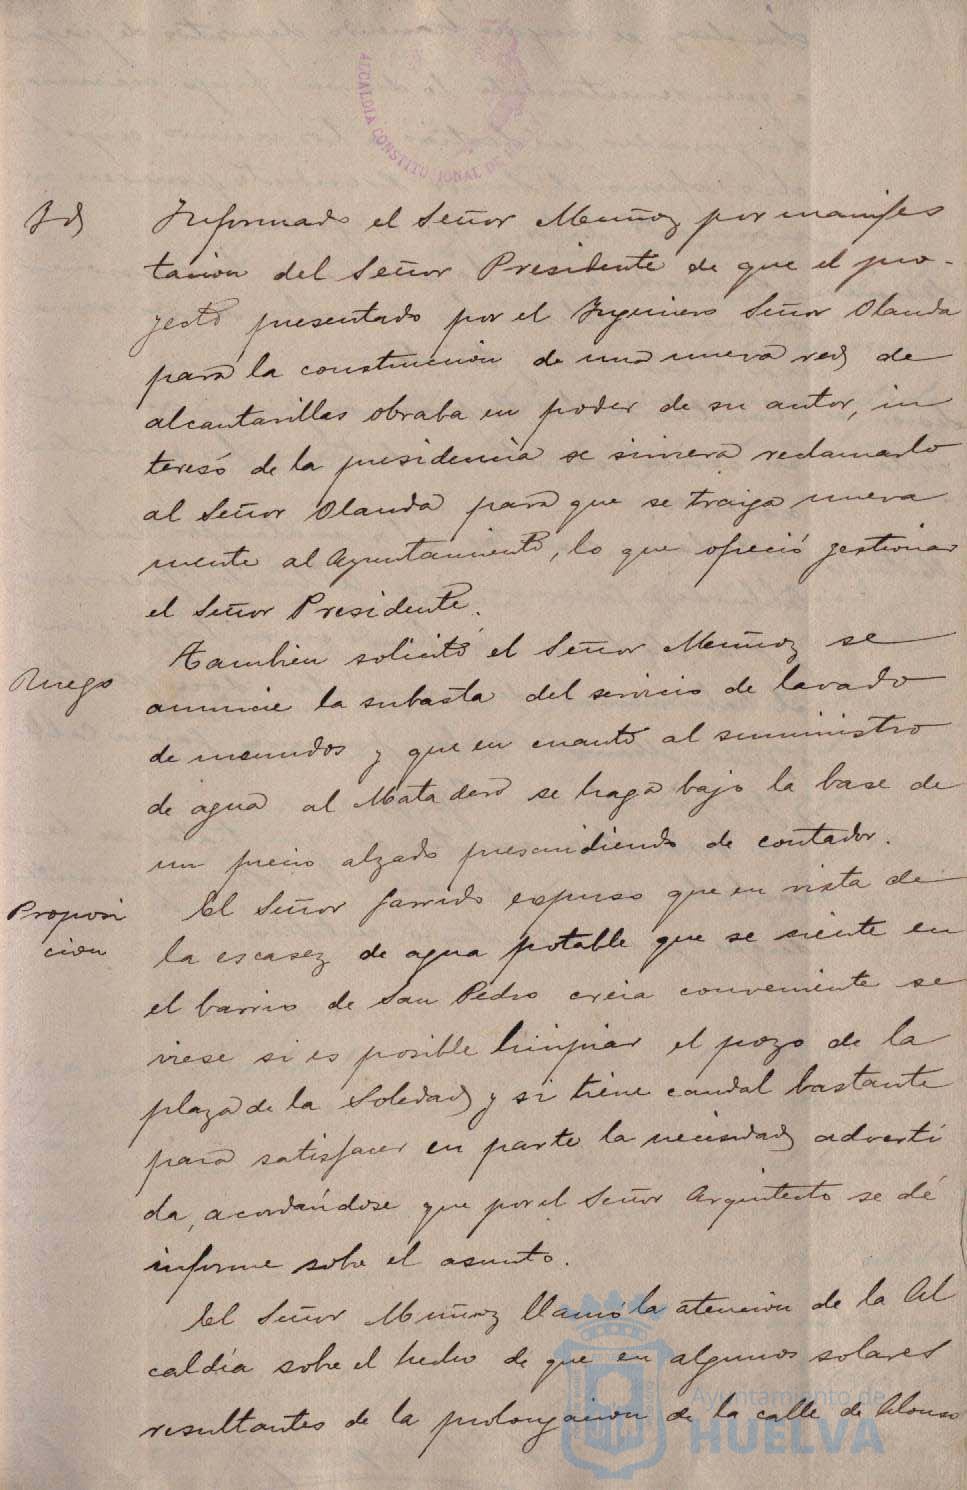 ALCALDIA CONSTITUCIONAL DE
Id
Informado el Señor Muñoz por manifes
tacion del Señor Presidente de que el pro-
yecto presentado por el Ingeniero Señor Olanda
para la construccion de una nueva red de
alcantarillas obraba en poder de su autor, in
teresó de la presidencia se sirviera reclamarlo
al Señor Olanda para que se traiga nueva
mente al Ayuntamiento, lo que ofreció gestionar
el Señor Presidente.
Ruego
Tambien solicitó el Señor Muñoz se
anuncie la subasta del servicio de lavado
de menudos y que en cuanto al suministro
de agua al Matadero se haga bajo la base de
un precio alzado prescindiendo de contador.
Proposi
cion
El Señor Garrido expuso que en vista de
la escasez de agua potable que se siente en
el barrio de San Pedro creia conveniente se
viese si es posible limpiar el pozo de la
plaza de la Soledad y si tiene caudal bastante
para satisfacer en parte la necesidad adverti
da, acordándose que por el Señor Arquitecto se dé
informe sobre el asunto.
El Señor Muñoz llamó la atencion de la Al
caldía sobre el hecho de que en algunos solares
resultantes de la prolongacion de la calle de Alonso
Ayuntamiento de
HUELVA